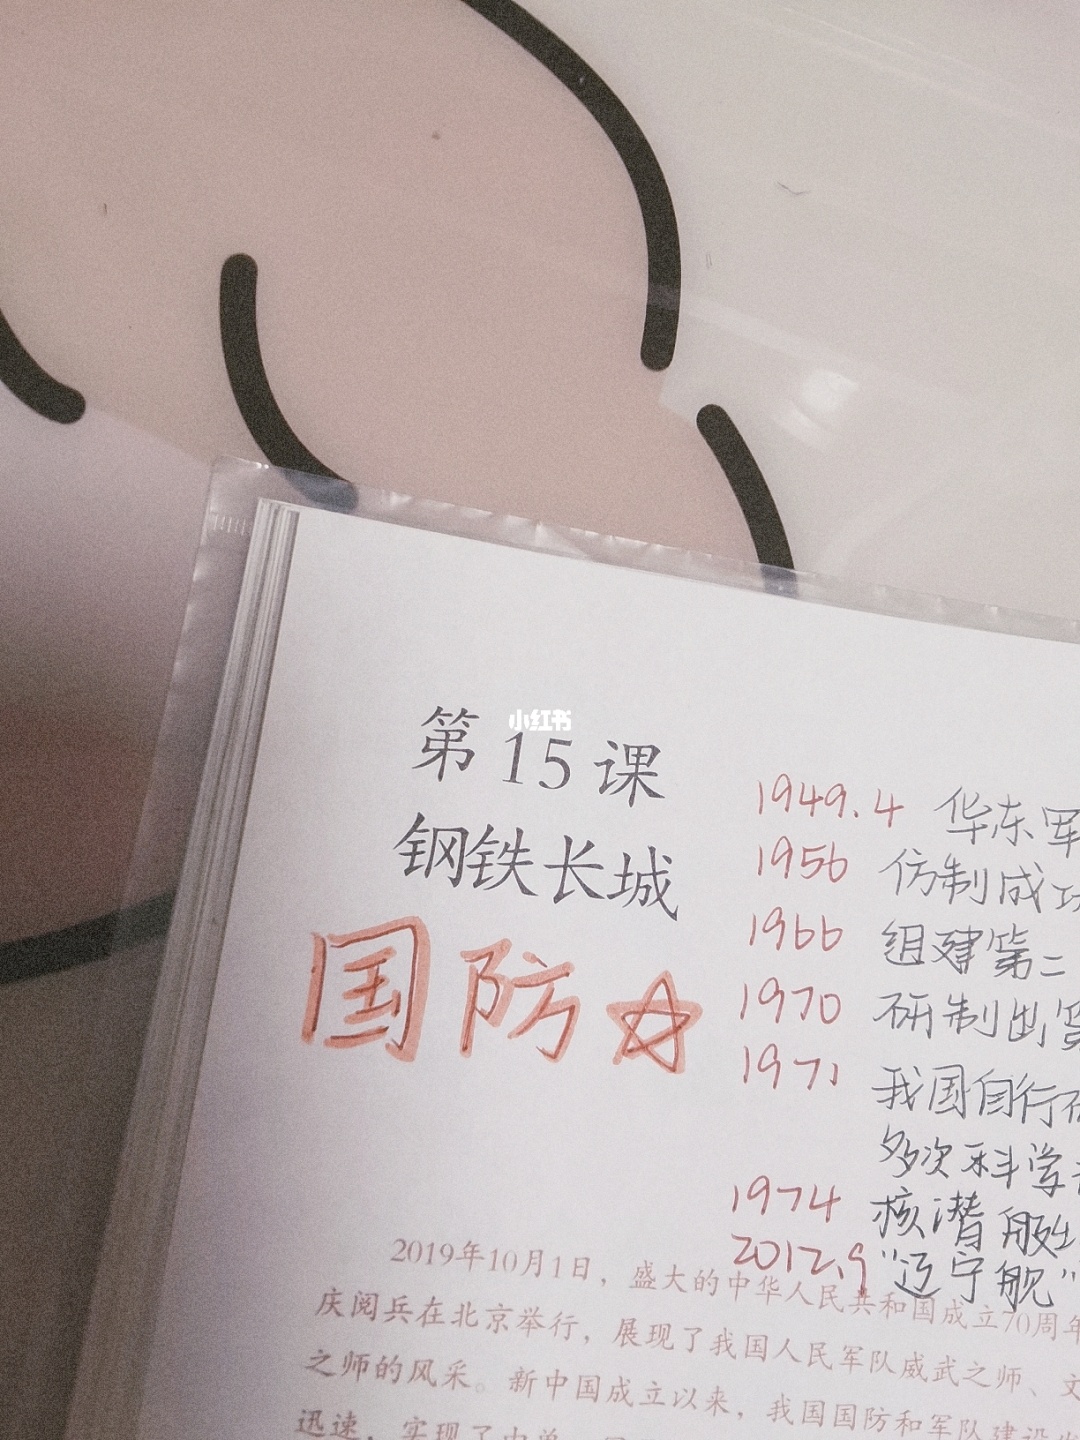 小红书
第15课
钢铁长城
国防☆
1949.4 华东军
1956 仿制成功
1966 组建第二
1970 研制出
1971 我国自行研
多次科学
1974 核潜艇
2012.9 "辽宁舰"
2019年10月1日，盛大的中华人民共和国成立70周年
庆阅兵在北京举行，展现了我国人民军队威武之师、文
之师的风采。新中国成立以来，我国国防和军队建设
迅速，实现了由单